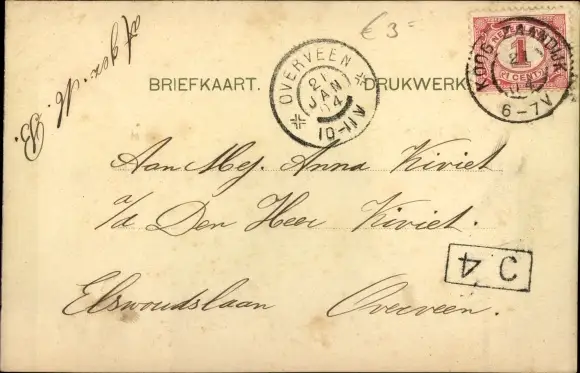 € 3=
BRIEFKAART. DRUKWERK
OVERVEEN
21
JAN
04
10-11V
KOOG-ZAANDIJK
04
6-7V
1
CENT
Aan Mej. Anna Kiviet
a/d Den Heer Kiviet.
C 4
Elswoudslaan Overveen.